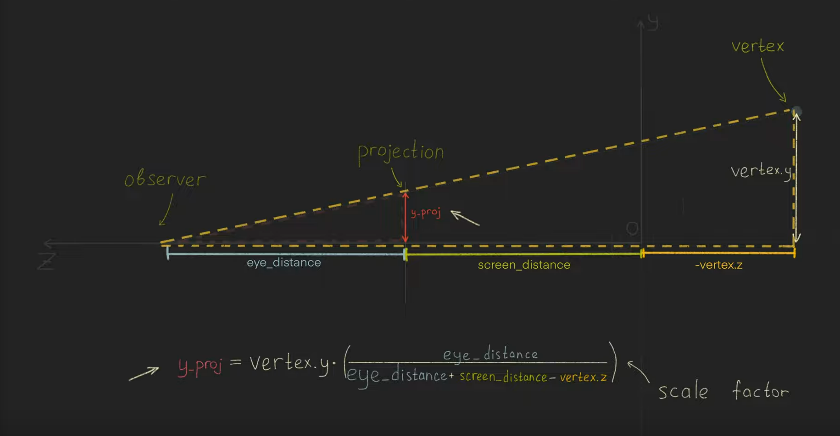 y
vertex
projection
observer
vertex.y
y-proj
O
Z
eye_distance
screen_distance
-vertex.z
y-proj = vertex.y · ( eye_distance
eye_distance + screen_distance - vertex.z )
scale factor